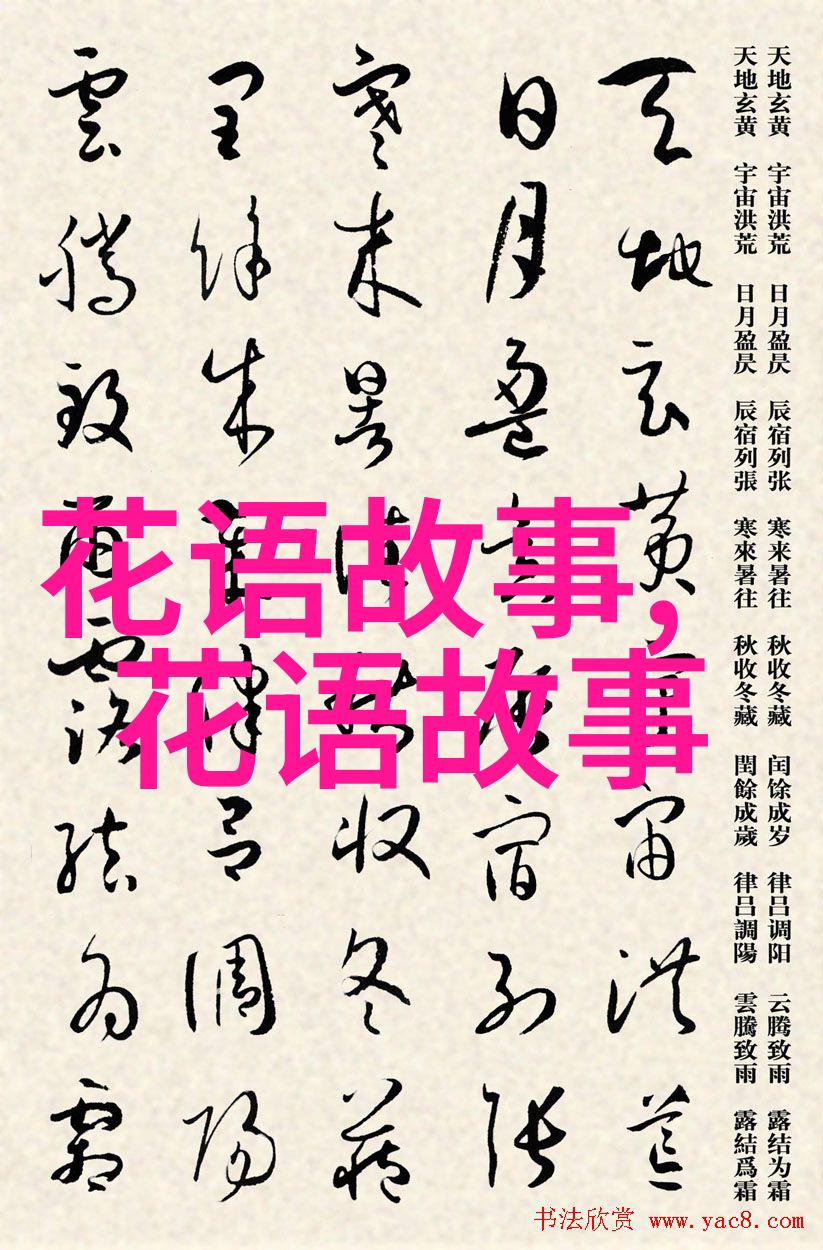 天地玄黄 宇宙洪荒 日月盈昃 辰宿列张 寒来暑往 秋收冬藏 闰馀成岁 律吕调阳 云腾致雨 露结为霜
天地玄黄 宇宙洪荒 日月盈昃 辰宿列張 寒來暑往 秋收冬藏 閏餘成歲 律吕調陽 雲騰致雨 露結爲霜
天地玄黄宇宙洪荒
日月盈昃辰宿列張
寒来暑往秋收冬藏
閏餘成歲律吕調陽
雲騰致雨露結为霜
花语故事,
花语故事
书法欣赏 www.yac8.com